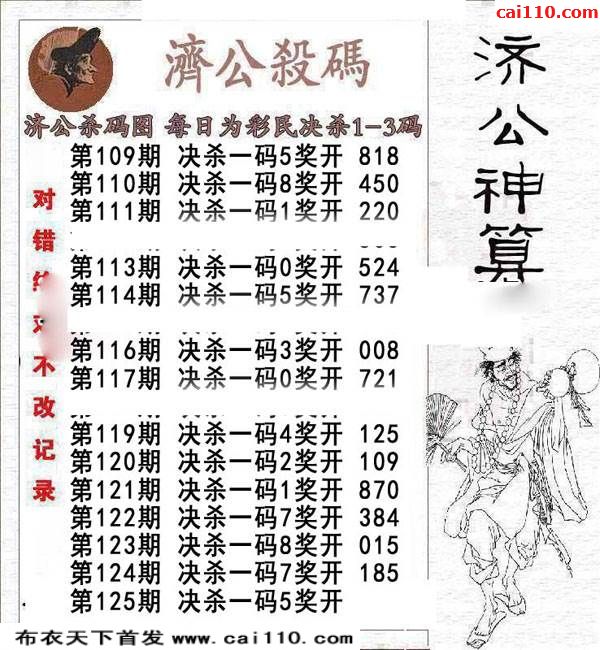 cai110.com
濟公殺碼
济公杀码图 每日为彩民决杀1-3码
第109期 决杀一码5奖开 818
第110期 决杀一码8奖开 450
第111期 决杀一码1奖开 220
第113期 决杀一码0奖开 524
第114期 决杀一码5奖开 737
第116期 决杀一码3奖开 008
第117期 决杀一码0奖开 721
第119期 决杀一码4奖开 125
第120期 决杀一码2奖开 109
第121期 决杀一码1奖开 870
第122期 决杀一码7奖开 384
第123期 决杀一码8奖开 015
第124期 决杀一码7奖开 185
第125期 决杀一码5奖开
对错
不改记录
济公神算
布衣天下首发 www.cai110.com